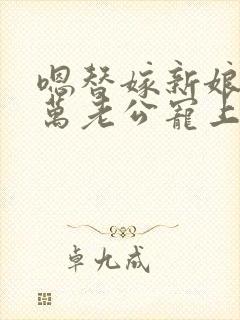 嗯替嫁新娘
萬老公寵上
卓九成